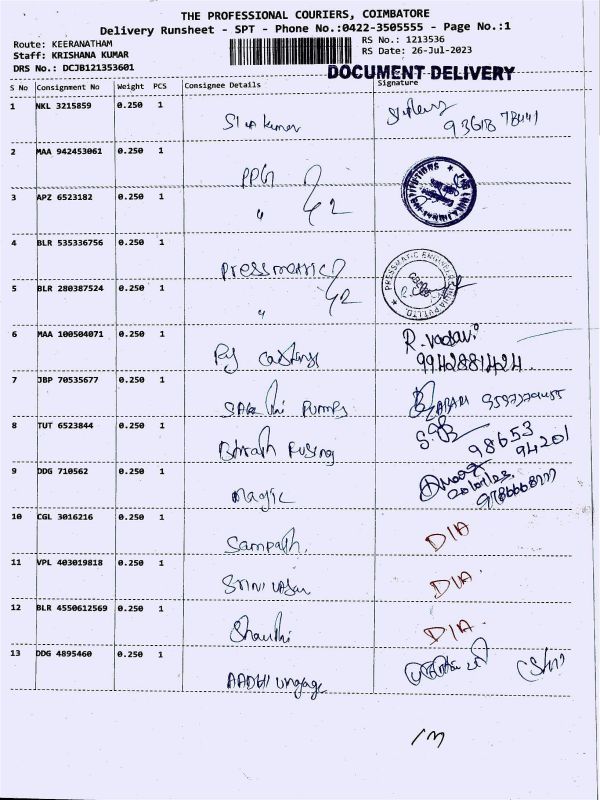 THE PROFESSIONAL COURIERS, COIMBATORE
Delivery Runsheet - SPT - Phone No.:0422-3505555 - Page No.:1
Route: KEERANATHAM
RS No.: 1213536
Staff: KRISHANA KUMAR
RS Date: 26-Jul-2023
DRS No.: DCJB121353601
DOCUMENT DELIVERY
S No Consignment No Weight PCS Consignee Details Signature
1 NKL 3215859 0.250 1
2 MAA 942453061 0.250 1
PPG
3 APZ 6523182 0.250 1
"
4 BLR 535336756 0.250 1
Pressmatic
5 BLR 280387524 0.250 1
"
6 MAA 100504071 0.250 1 R. 
9942881424.
7 JBP 70535677 0.250 1
Sakthi Pumps
8 TUT 6523844 0.250 1
98653
94201
9 DDG 710562 0.250 1
Magic
10 CGL 3016216 0.250 1
Sampath. D/A
11 VPL 403019818 0.250 1
Srinivasan D/A.
12 BLR 4550612569 0.250 1
Shanthi D/A.
13 DDG 4895460 0.250 1
13